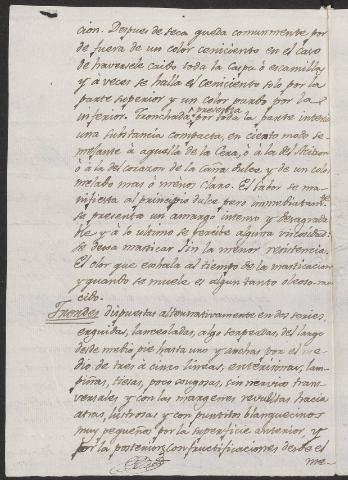 cion. Despues de seca queda comunmente por
de fuera de un color ceniciento en el caso
de haversele caido toda la caspa ó escamillas
y à veces se halla el ceniciento solo por la
parte superior y un color pardo por la
inferior. Tronchada presenta por toda la parte interior
una substancia compacta, en cierto modo se-
mejante à aquella de la Cera, ó à la del
ó à la del corazon de la Caña dulce, y de un color
melado mas ó menos claro. El sabor se ma-
nifiesta al principio dulce, pero immediatamte
se presenta un amargo intenso y desagrada-
ble y à lo ultimo se percibe alguna viscosidad:
se dexa masticar sin la menor resistencia.
El olor que exhala al tiempo de la masticacion
y quando se muele es algun tanto oleoso-ran-
cido.
Frondes dispuestas alternativamente en dos series,
erguidas, lanceoladas, algo del largo
desde medio pie hasta uno y anchas por el me-
dio de tres à cinco lineas, enterisimas, lam-
piñas, tiesas, poco jugosas, sin nervios trans-
versales y con las margenes revueltas hacia
atras, lustrosas y con puntitos blanquecinos
muy pequeños por la superficie anterior, y
por la posterior con fructificaciones desde el
me-